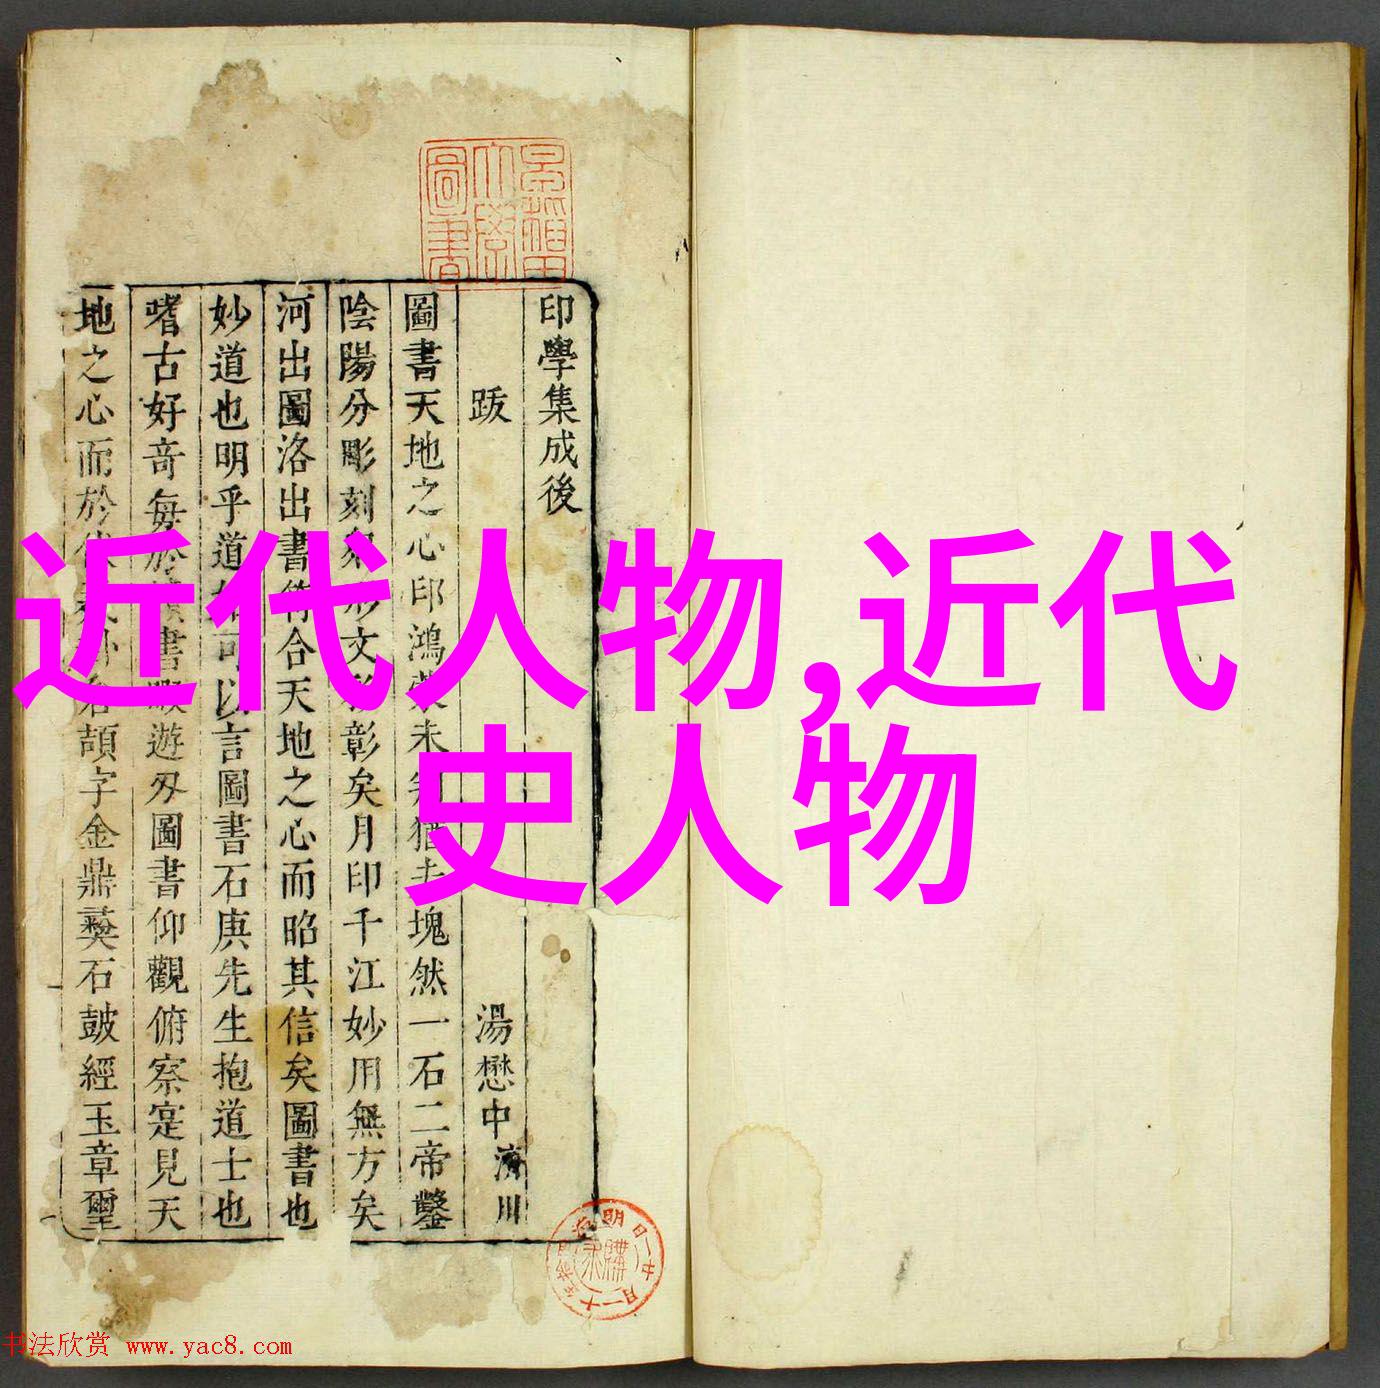 印學集成後
跋 湯懋中 濟川
圖書天地之心印鴻濛未判猶夫塊然一石二帝鑿
陰陽分彫刻 文 彰矣月印千江妙用無方矣
河出圖洛出書符合天地之心而昭其信矣圖書也
妙道也明乎道 可以言圖書石庚先生抱道士也
嗜古好奇每於 書暇遊 圖書仰觀俯察寔見天
地之心而於 頡字金鼎彝石鼓經玉章璽
近代人物,近代
史人物
圖書
明治 年十一月廿一日 購求
书法欣赏 www.yac8.com